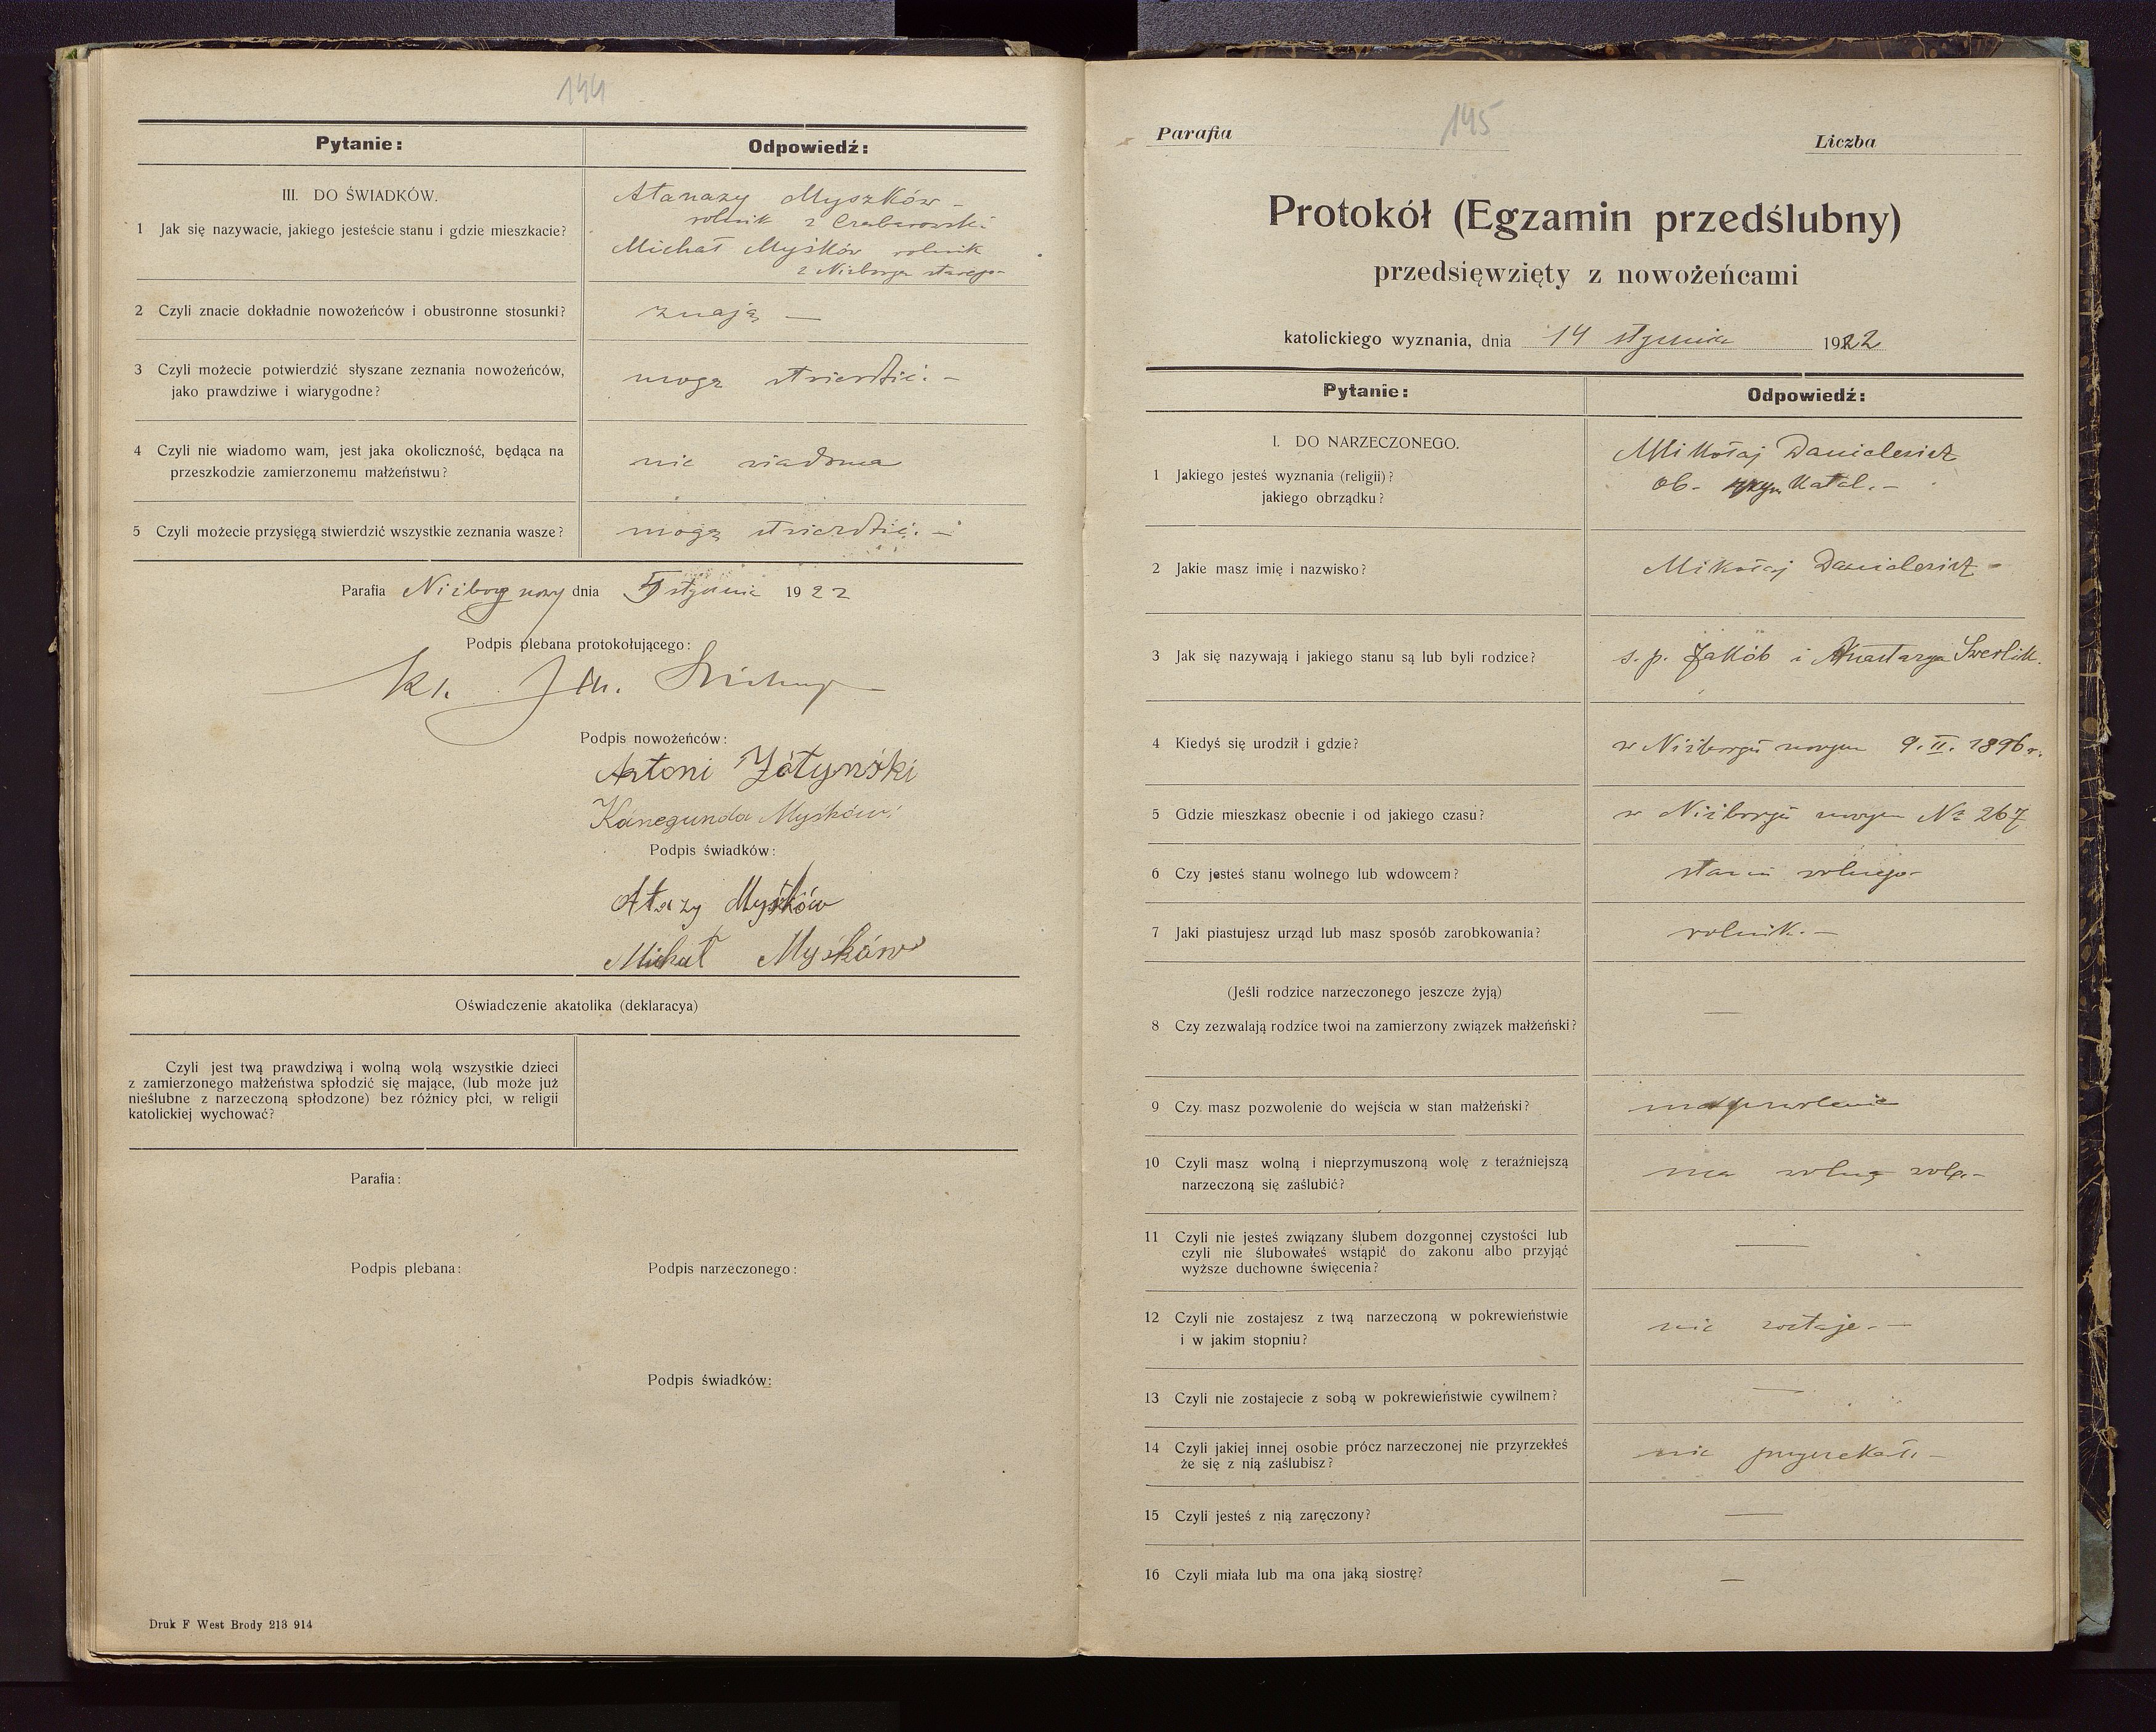 144
Pytanie:
Odpowiedź:
III. DO ŚWIADKÓW.
1 Jak się nazywacie, jakiego jesteście stanu i gdzie mieszkacie?
Atanazy Myszków -
rolnik z
Michał Myśków rolnik
z Niżborga starego
2 Czyli znacie dokładnie nowożeńców i obustronne stosunki?
znają —
3 Czyli możecie potwierdzić słyszane zeznania nowożeńców,
jako prawdziwe i wiarygodne?
mogą stwierdzić. -
4 Czyli nie wiadomo wam, jest jaka okoliczność, będąca na
przeszkodzie zamierzonemu małżeństwu?
nie wiadoma
5 Czyli możecie przysięgą stwierdzić wszystkie zeznania wasze?
mogą stwierdzić. -
Parafia Niżborg nowy dnia stycznia 1922
Podpis plebana protokołującego:
Podpis nowożeńców:
Antoni
Kanegunda Myśków
Podpis świadków:
Atazy Myśków
Michał Myśków
Oświadczenie akatolika (deklaracya)
Czyli jest twą prawdziwą i wolną wolą wszystkie dzieci
z zamierzonego małżeństwa spłodzić się mające, (lub może już
nieślubne z narzeczoną spłodzone) bez różnicy płci, w religii
katolickiej wychować?
Parafia:
Podpis plebana:
Podpis narzeczonego:
Podpis świadków:
Druk F West Brody 213 914
145
Parafia
Liczba
Protokół (Egzamin przedślubny)
przedsięwzięty z nowożeńcami
katolickiego wyznania, dnia 14 stycznia 1922
Pytanie:
Odpowiedź:
I. DO NARZECZONEGO.
1 Jakiego jesteś wyznania (religii)?
jakiego obrządku?
Mikołaj Danielewicz
ob. rzym Katol. -
2 Jakie masz imię i nazwisko?
Mikołaj Danielewicz -
3 Jak się nazywają i jakiego stanu są lub byli rodzice?
s. p. Jakób i Anastazya Swerlik.
4 Kiedyś się urodził i gdzie?
w Niżborgu nowym 9. II. 1896 r.
5 Gdzie mieszkasz obecnie i od jakiego czasu?
w Niżborgu nowym No 267
6 Czy jesteś stanu wolnego lub wdowcem?
stanu wolnego -
7 Jaki piastujesz urząd lub masz sposób zarobkowania?
rolnik. -
(Jeśli rodzice narzeczonego jeszcze żyją)
8 Czy zezwalają rodzice twoi na zamierzony związek małżeński?
—
9 Czy masz pozwolenie do wejścia w stan małżeński?
ma pozwolenie
10 Czyli masz wolną i nieprzymuszoną wolę z teraźniejszą
narzeczoną się zaślubić?
ma wolną wolę. -
11 Czyli nie jesteś związany ślubem dozgonnej czystości lub
czyli nie ślubowałeś wstąpić do zakonu albo przyjąć
wyższe duchowne święcenia?
—
12 Czyli nie zostajesz z twą narzeczoną w pokrewieństwie
i w jakim stopniu?
nie zostaje. -
13 Czyli nie zostajecie z sobą w pokrewieństwie cywilnem?
—
14 Czyli jakiej innej osobie prócz narzeczonej nie przyrzekłeś
że się z nią zaślubisz?
nie przyrzekał. -
15 Czyli jesteś z nią zaręczony?
—
16 Czyli miała lub ma ona jaką siostrę?
—